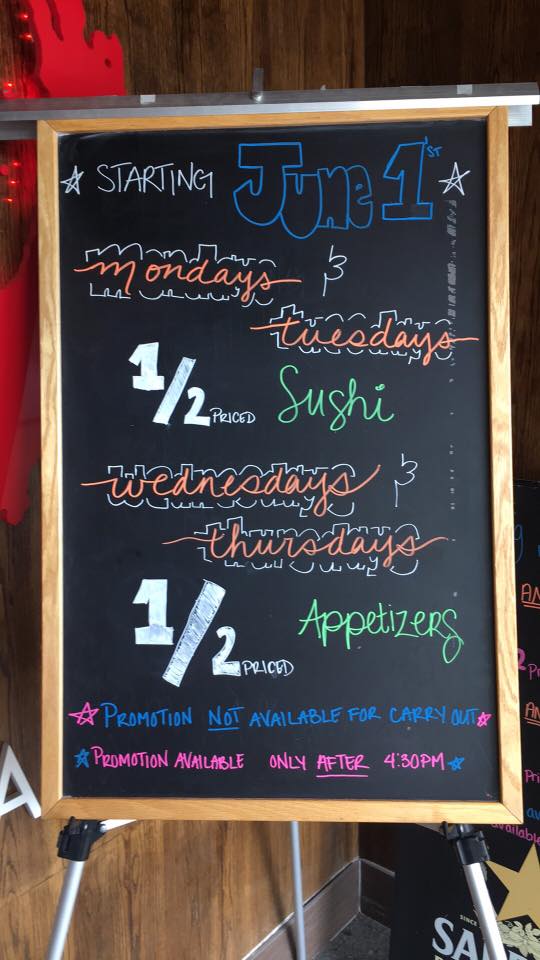 ☆ STARTING June 1ST ☆
mondays &
tuesdays
1/2 PRICED Sushi
wednesdays &
thursdays
1/2 PRICED Appetizers
☆ PROMOTION NOT AVAILABLE FOR CARRY OUT ☆
☆ PROMOTION AVAILABLE ONLY AFTER 4:30PM ☆
A
available
SINCE